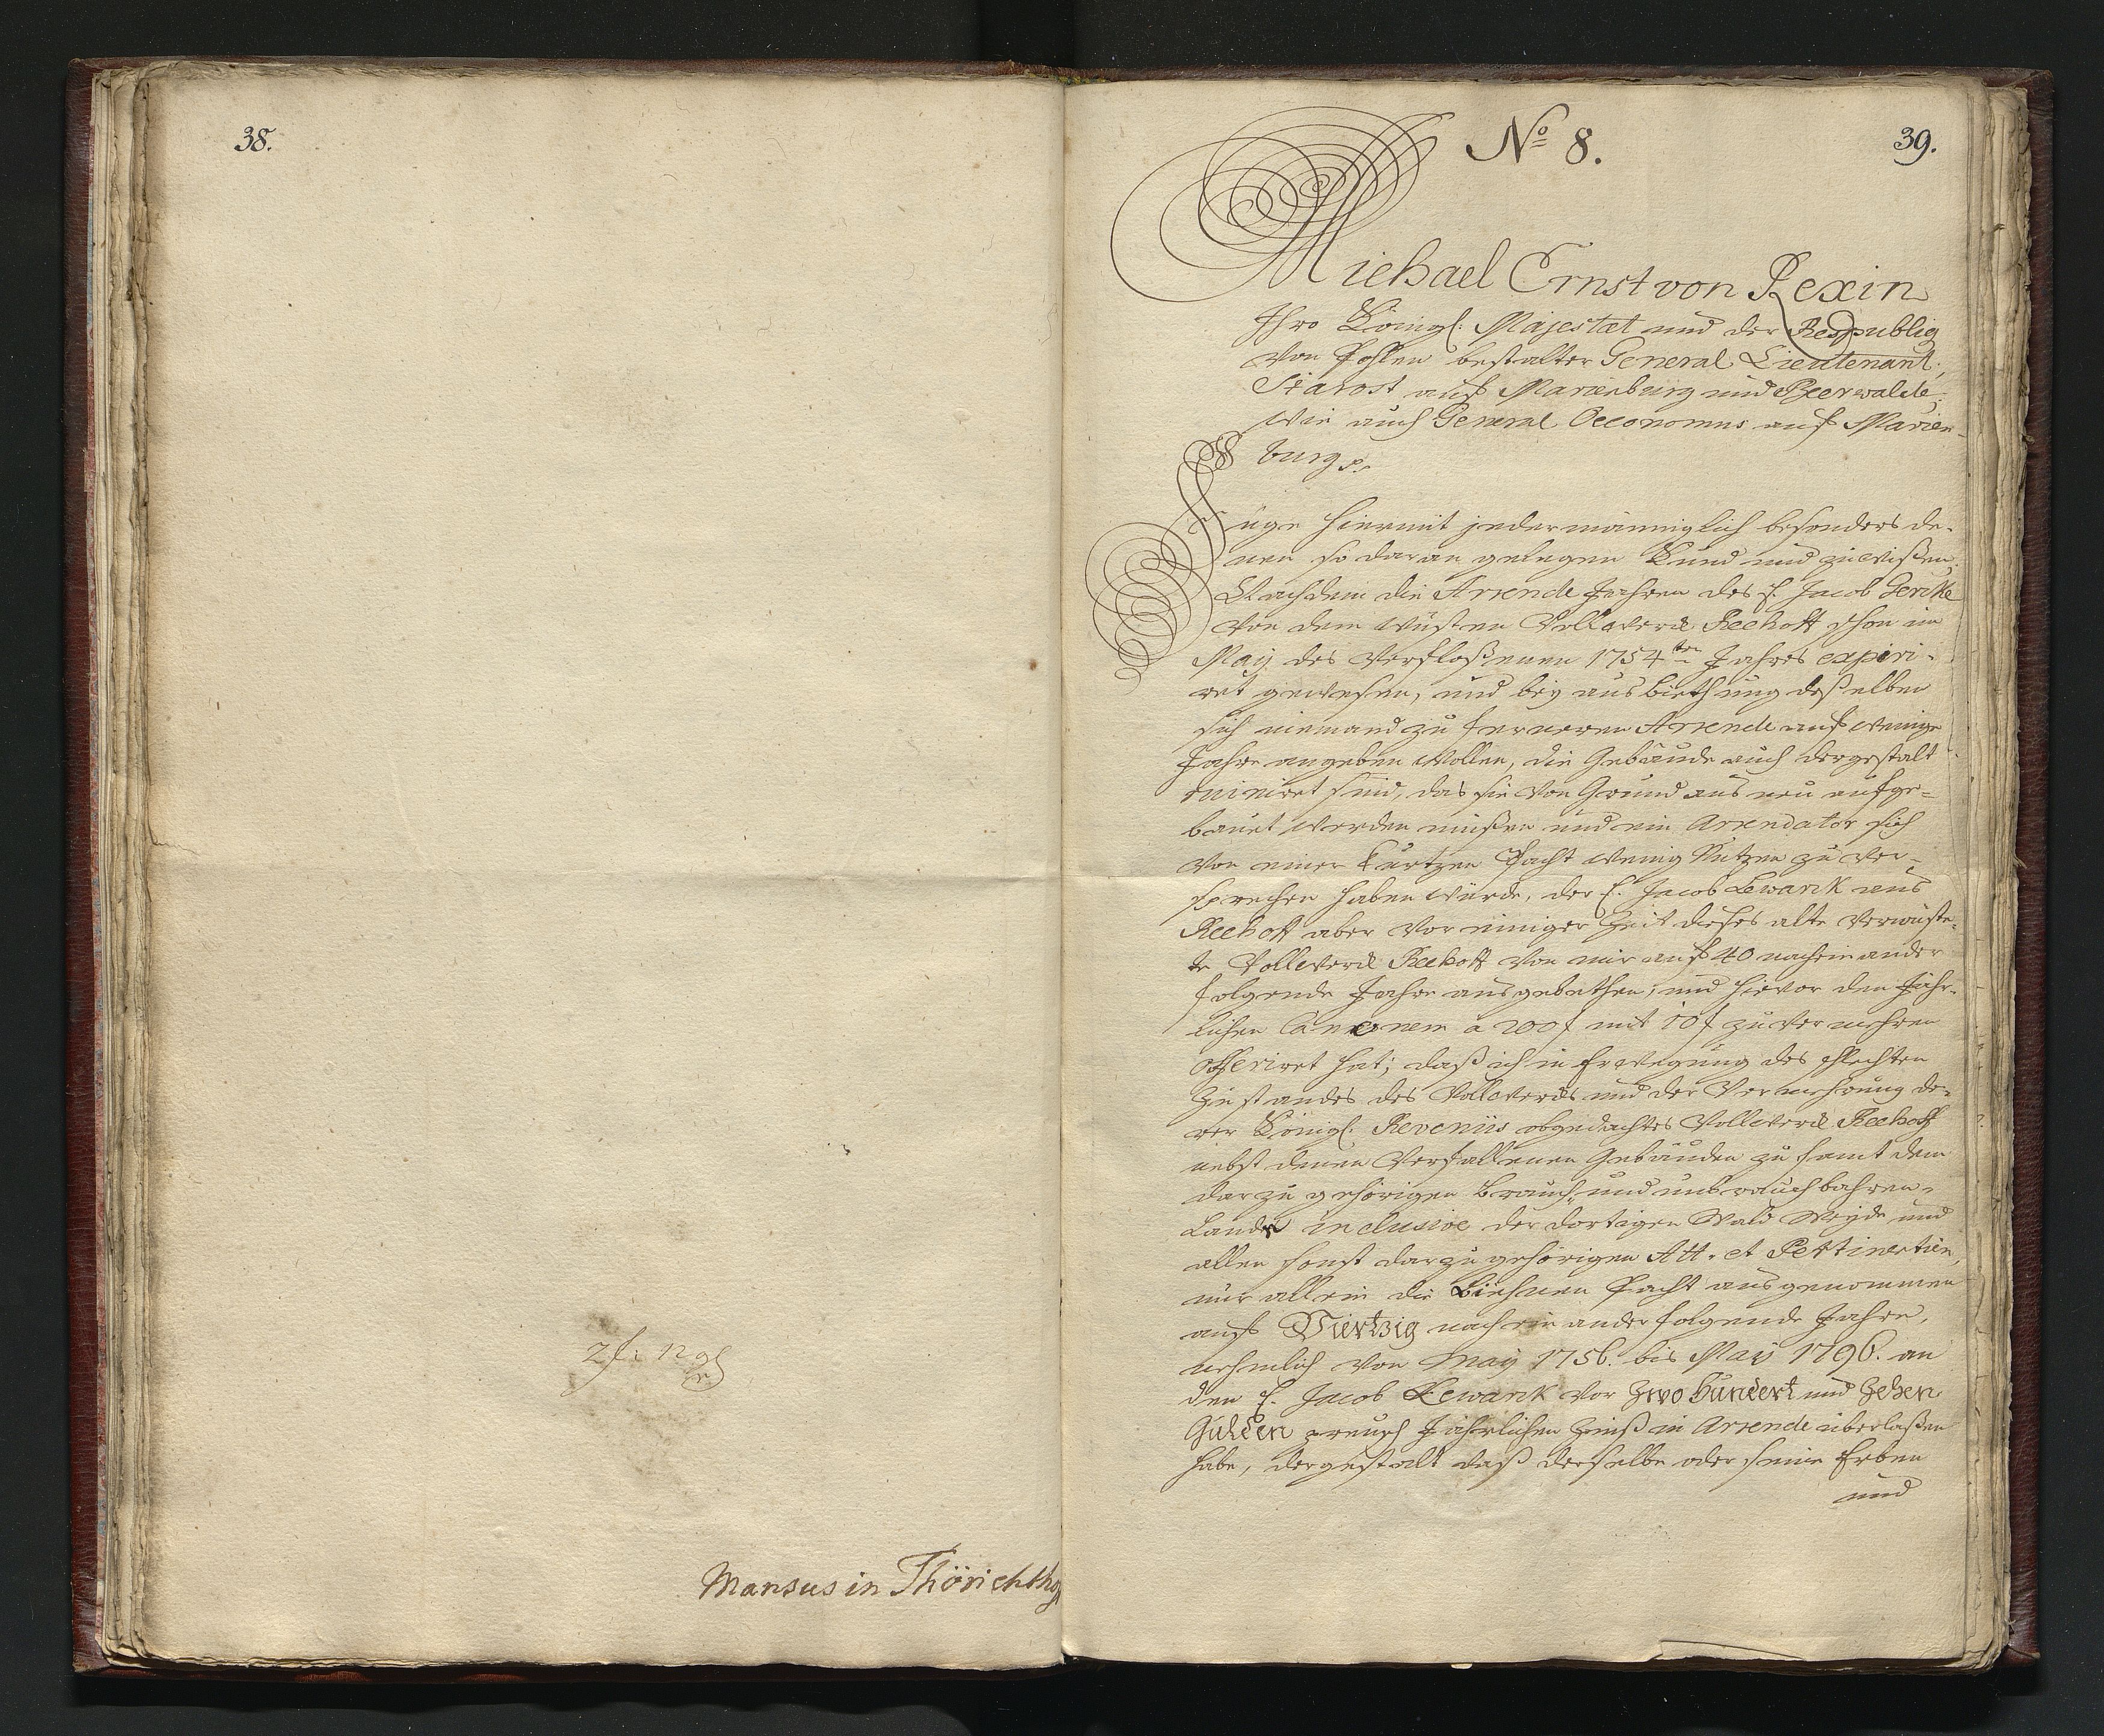 38.
2 f: 12 gl
Mansus in Thörichthof
No 8.
39.
Michael Ernst von Rexin
Ihro Königl: Majestæt und der Respubliq
von Pohlen bestalter General Lieutenant,
Starost auf Marienburg und Beerwalde,
wie auch General Oeconomus auf Marien-
burg p.
Füge hiermit jedermänniglich besonders de-
nen so daran gelegen Kund und zu wißen,
Nachdem die Arrende Jahren des f. Jacob Gericke
von dem wüsten Vollwerck Reehoff schon im
Maij des verfloßenen 1754ten Jahres expiri-
ret gewesen, und bey ausbiethung deßelben
sich niemand zu ferneren Arrende auf wenige
Jahre angeben wollen, die Gebäude auch dergestalt
ruiniret sind, das sie von Grund aus neu aufge=
bauet werden müßen und ein Arrendator sich
von einer kurtzen Pacht wenig Nutzen zu ver-
sprechen haben würde, der f. Jacob Lewark aus
Reehoff aber vor einiger Zeit dieses alte verwüste-
te Vollwerck Reehoff von mir auf 40 nacheinander
folgende Jahre ausgebethen, und hievor den Jähr-
lichen Canonem a 200 f mit 10 f zu vermehren
offeriret hat; daß ich in Erwegung des schlechten
Zustandes des Vollwercks und der Vermehrung de-
rer Königl: Revenüs obgedachtes Vollwerck Reehoff
nebst denen verfallenen Gebäuden zu samt dem
darzu gehörigen brauch- und unbrauchbahren-
Lande inclusive der dortigen Wald Weyde und
allen sonst darzu gehörigen Att. et Pertinentien,
nur allein die Biehnen Pacht ausgenommen
auf Viertzig nach ein ander folgende Jahre,
nehmlich von Maij 1756. bis Maij 1796. an
den f. Jacob Lewark vor Zwo Hundert und Zehen
Gulden preusch Jährlichen Zinß in Arrende überlaßen
habe, dergestalt daß derselbe oder seine Erben
und